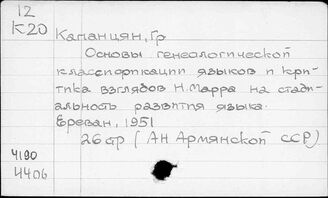 12
К20
Капанцян, Гр
Основы генеологической
классификации языков и кри-
тика взглядов Н. Марра на стади-
альность развития языка.
Ереван, 1951
26 стр (АН Армянской ССР)
4190
4406